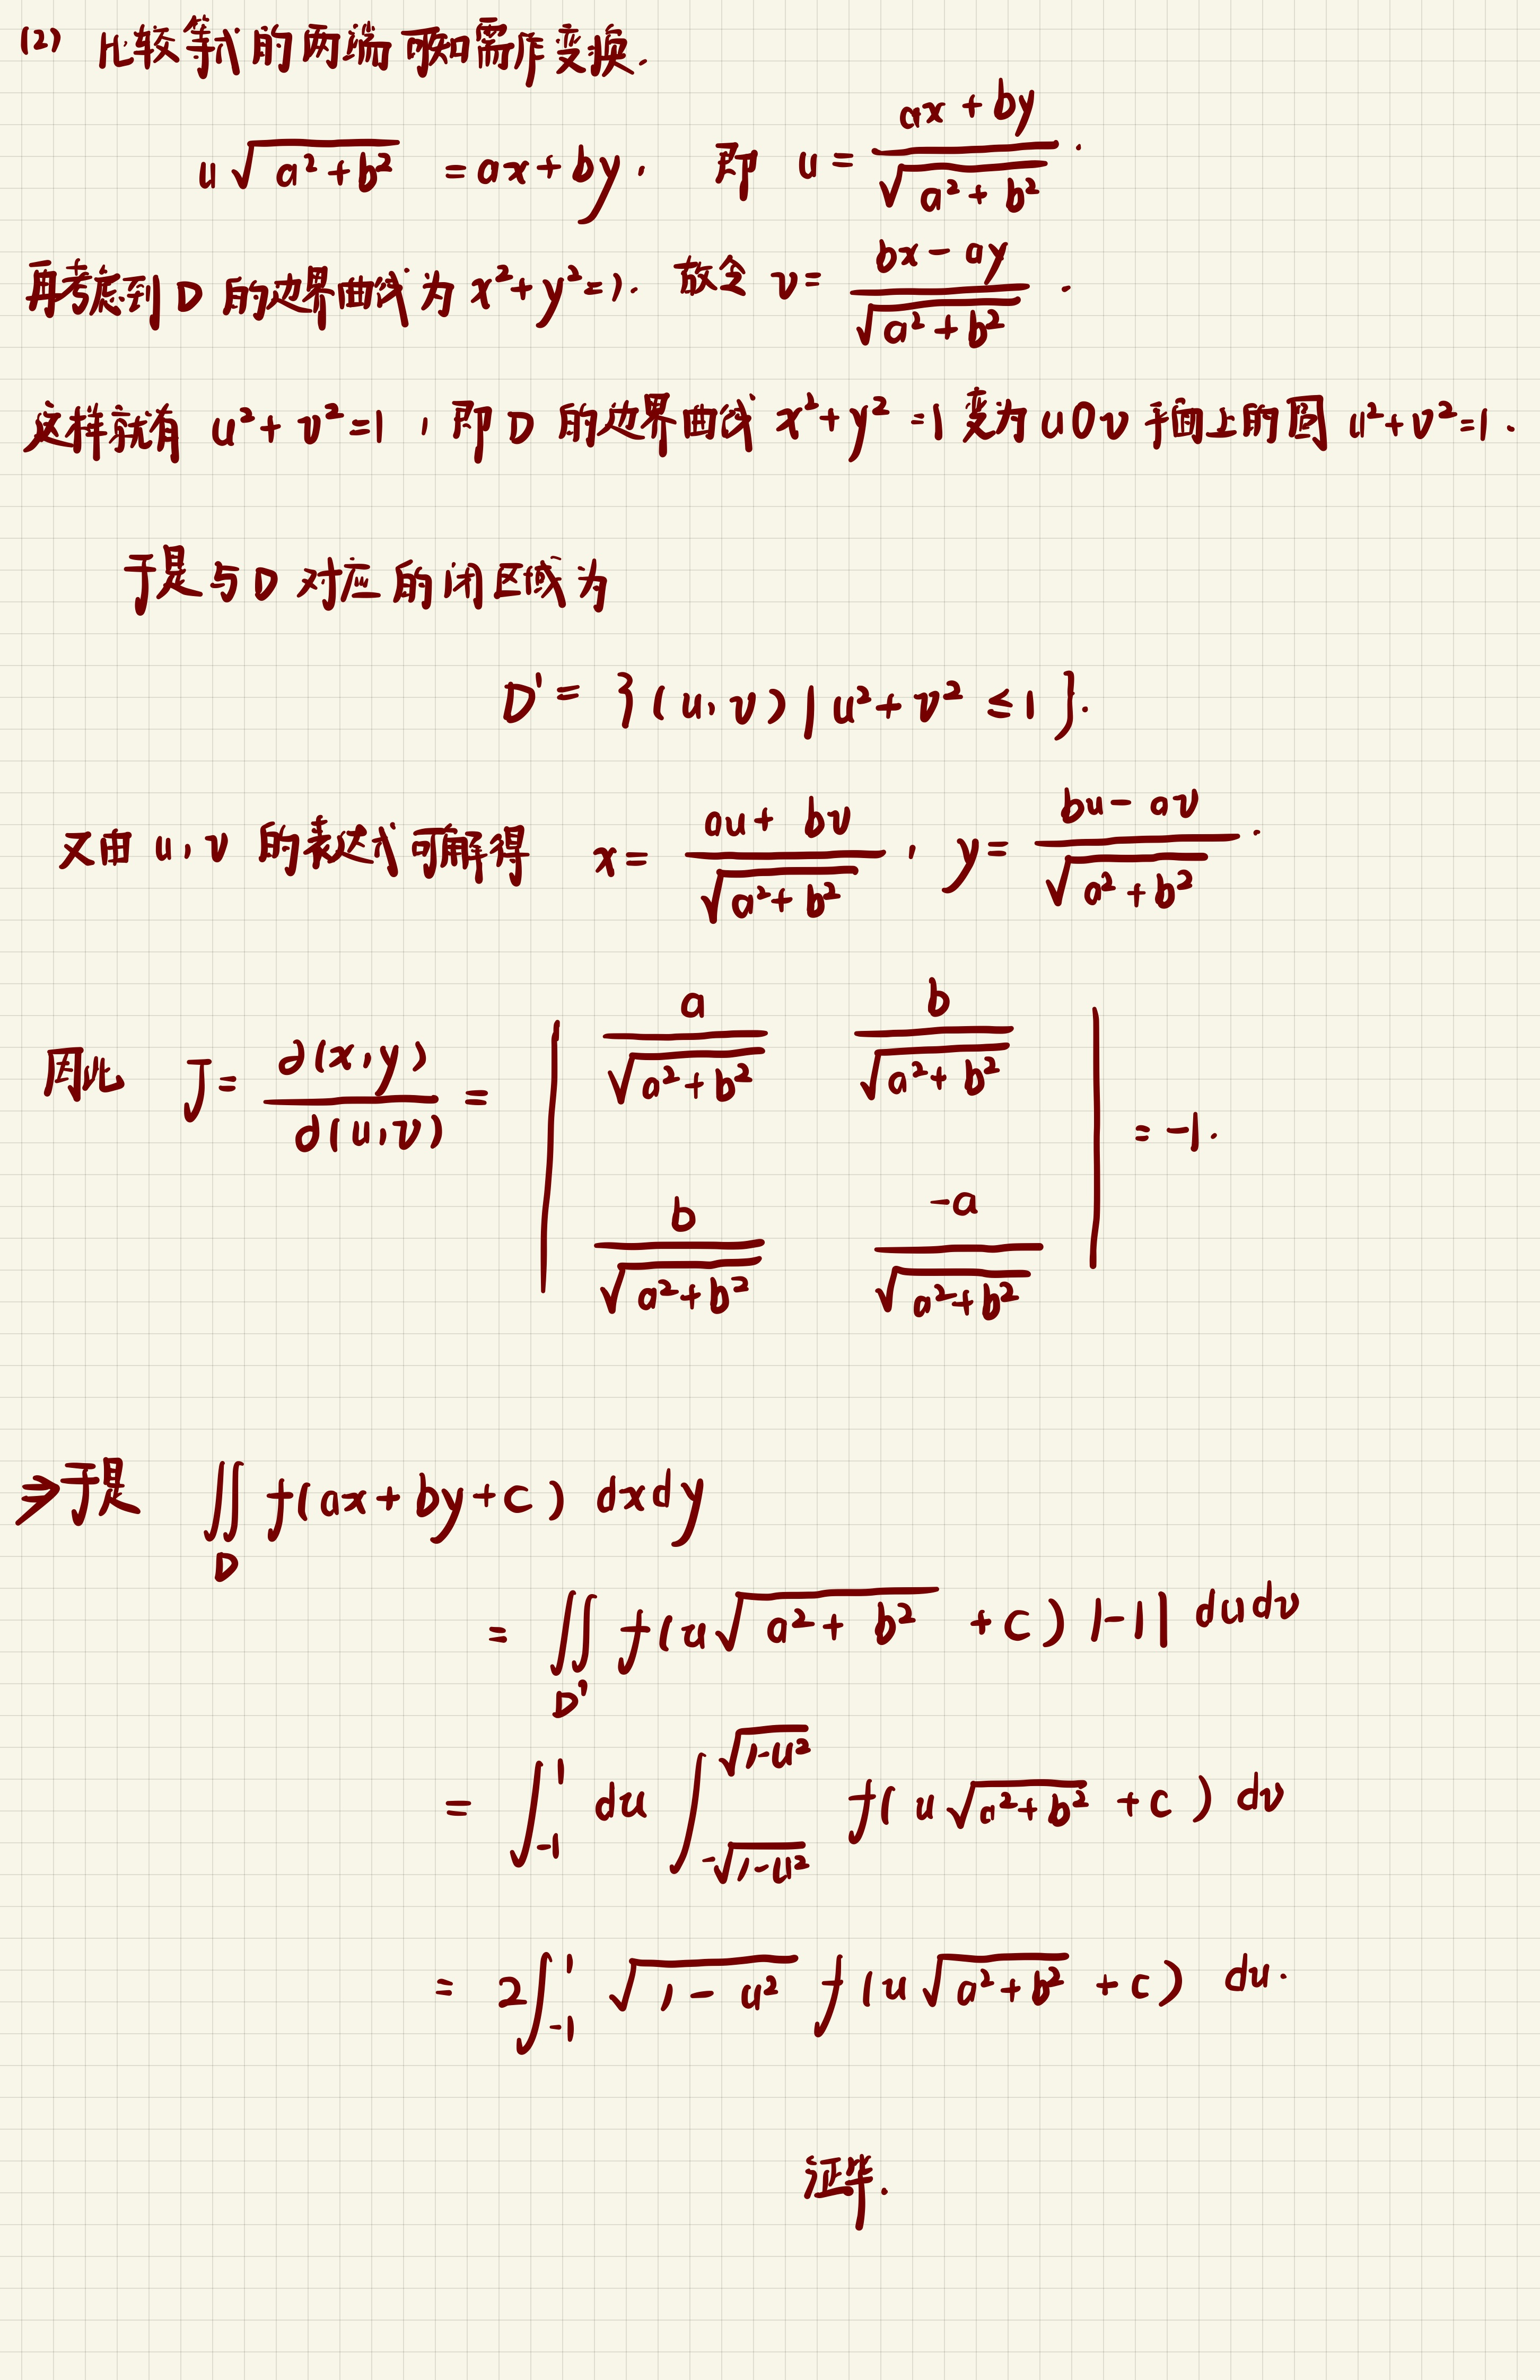 (2) 比较等式的两端可知需作变换.
u√(a²+b²) = ax+by, 即 u = (ax+by)/√(a²+b²).
再考虑到 D 的边界曲线为 x²+y²=1. 故令 v = (bx-ay)/√(a²+b²).
这样就有 u²+v²=1, 即 D 的边界曲线 x²+y²=1 变为 uOv 平面上的圆 u²+v²=1.
于是与 D 对应的闭区域为
D' = {(u,v) | u²+v² ≤ 1}.
又由 u,v 的表达式可解得 x = (au+bv)/√(a²+b²), y = (bu-av)/√(a²+b²).
因此 J = ∂(x,y)/∂(u,v) = | a/√(a²+b²) b/√(a²+b²) |
| b/√(a²+b²) -a/√(a²+b²) | = -1.
⇒于是 ∬_D f(ax+by+c) dxdy
= ∬_D' f(u√(a²+b²) + c) |-1| dudv
= ∫_{-1}^{1} du ∫_{-√(1-u²)}^{√(1-u²)} f(u√(a²+b²) + c) dv
= 2∫_{-1}^{1} √(1-u²) f(u√(a²+b²) + c) du.
证毕.